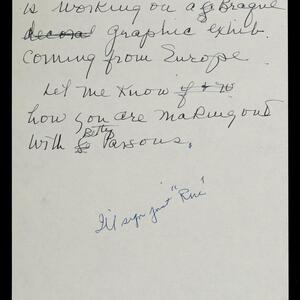 is working on a Braque
decoral graphic exhib.
coming from Europe.
Let me know if + w
how you are making out
with Betty Parsons.
I'll sign just "Rue"